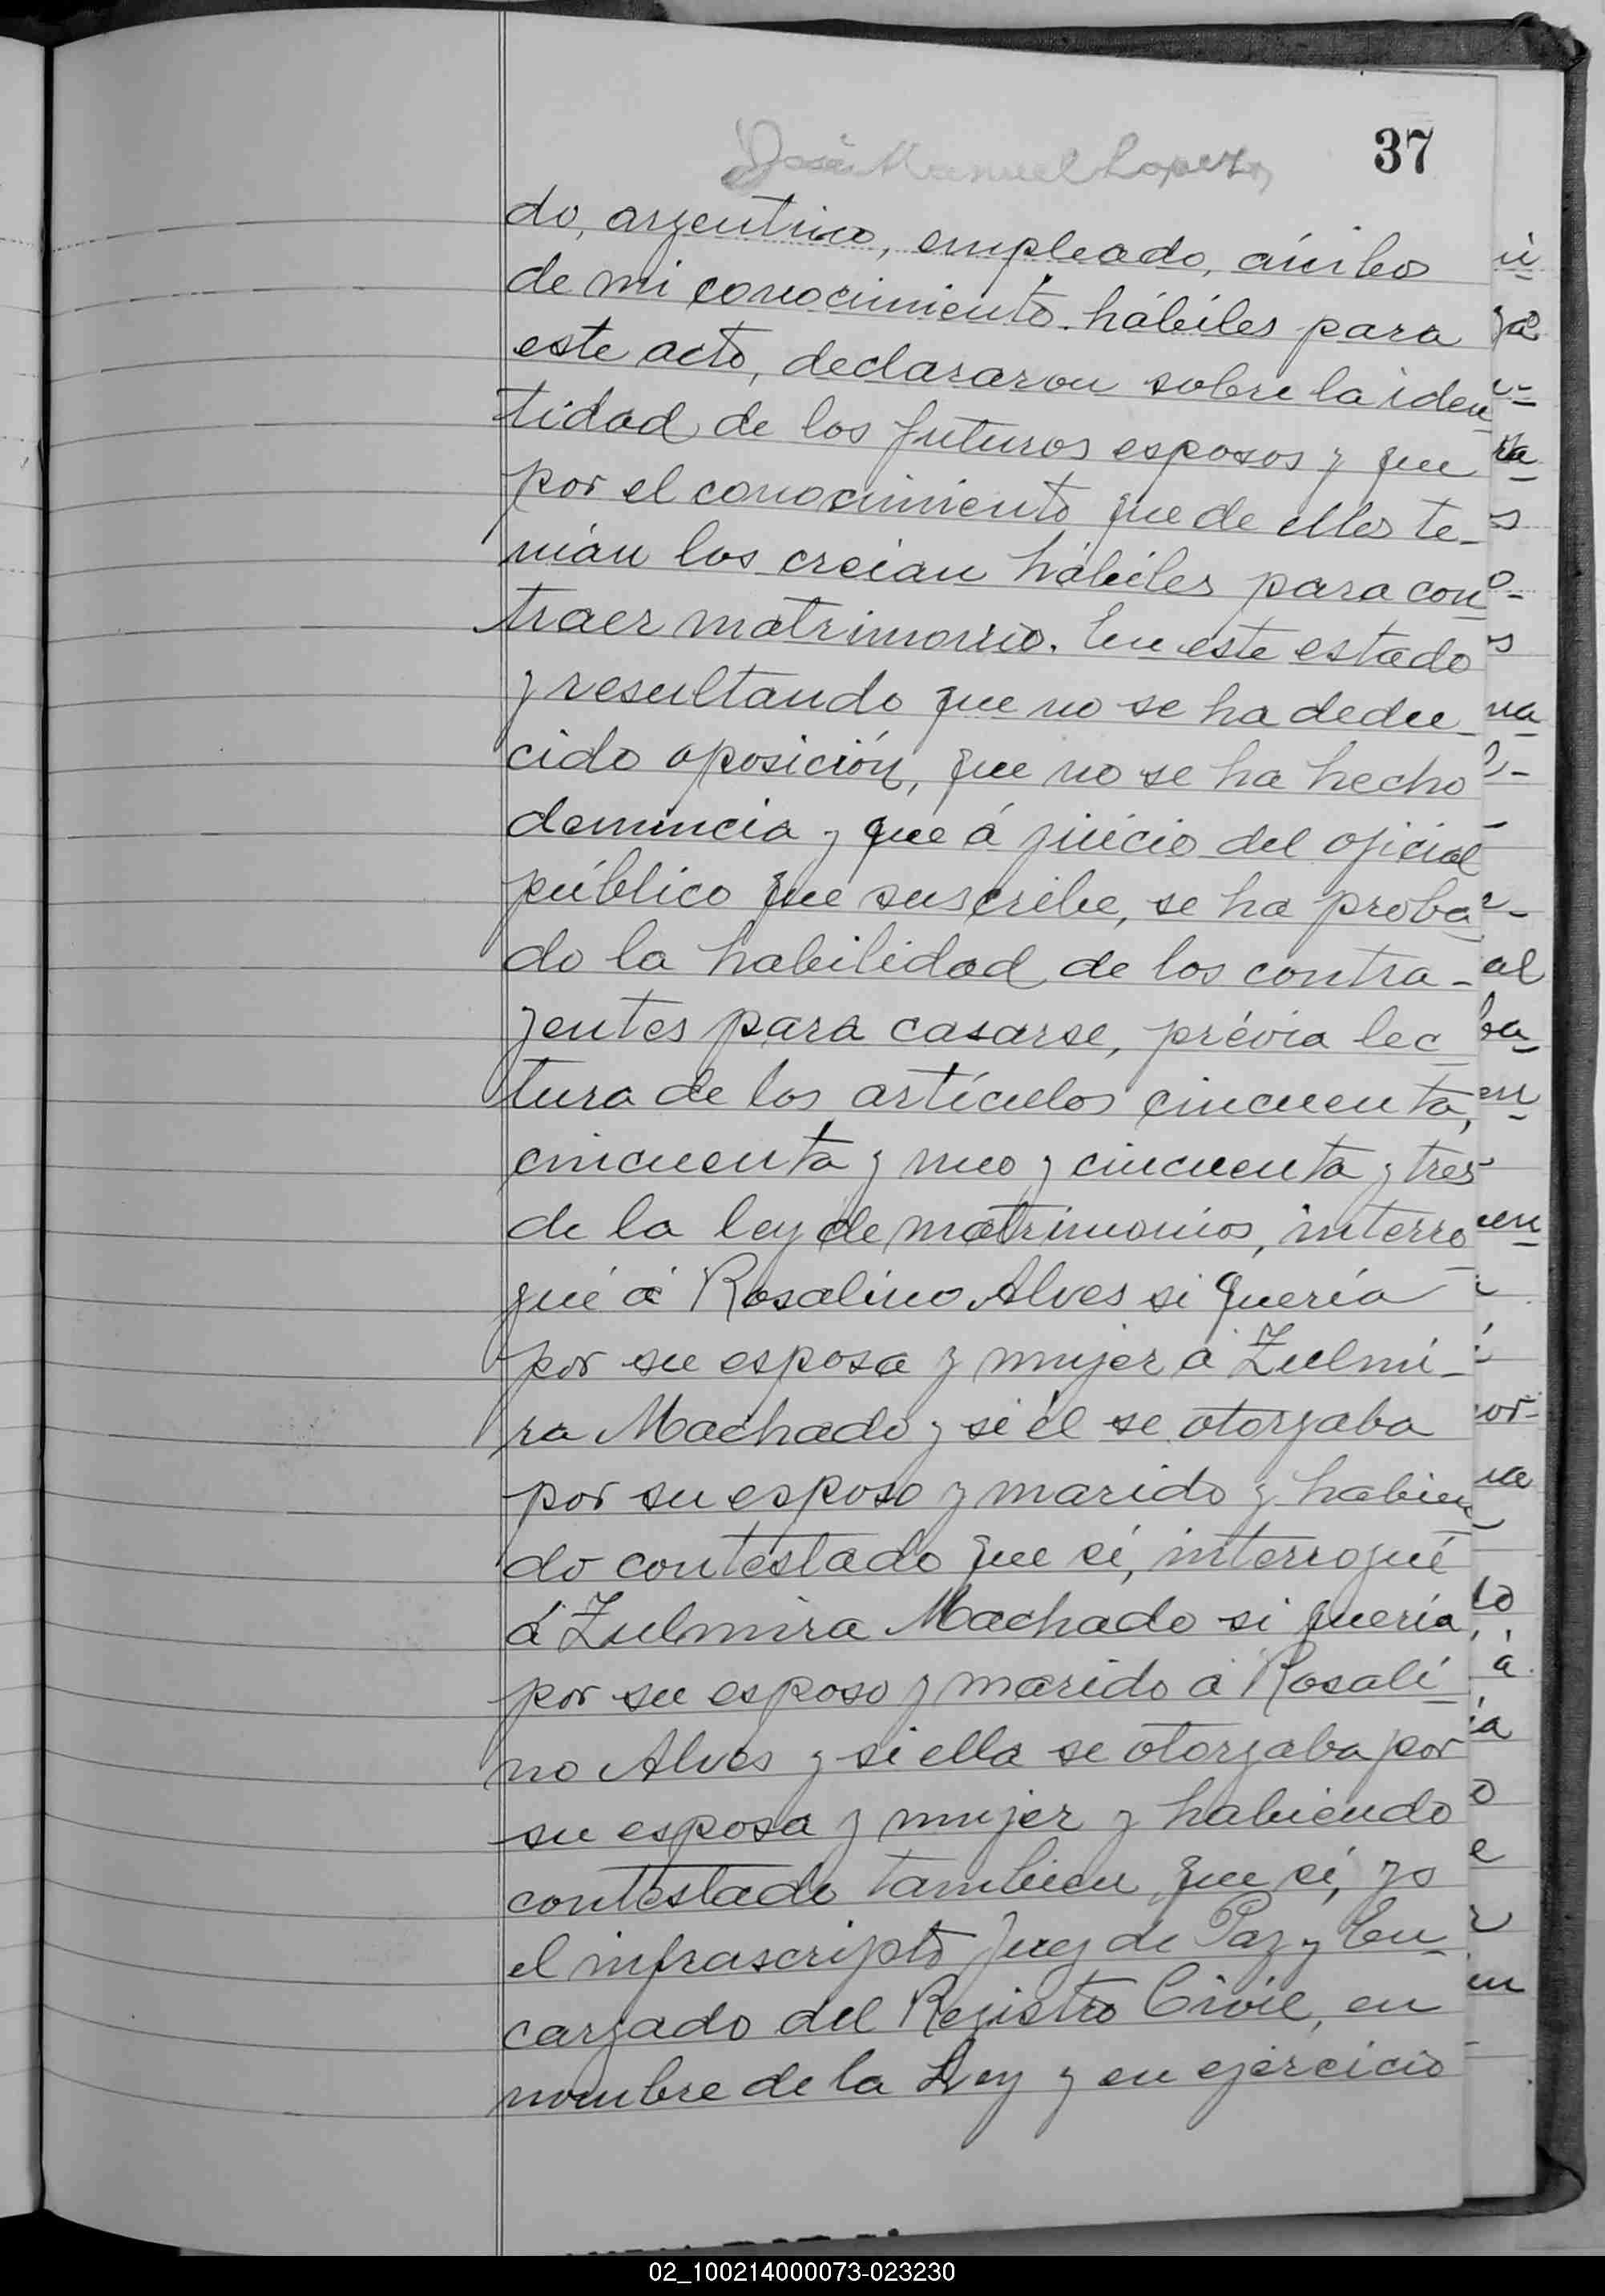 37
José Manuel Lopez
do, argentino, empleado, ámbos
de mi conocimiento hábiles para
este acto, declararon sobre la iden
tidad de los futuros esposos y que
por el conocimiento que de ellos te-
nián los creian hábiles para con
traer matrimonio. En este estado
y resultando que no se ha dedu_
cido oposición, que no se ha hecho
denuncia y que á juicio del oficial
público que suscribe, se ha proba
do la habilidad de los contra-
yentes para casarse, prévia lec_
tura de los artículos cincuenta,
cincuenta y uno y cincuenta y tres
de la ley de matrimonios, interro
gué á Rosalino Alves si quería
por su esposa y mujer á Zulmi-
ra Machado y si él se otorgaba
por su esposo y marido y habien
do contestado que sí, interrogué
á Zulmira Machado si quería
por su esposo y marido á Rosali
no Alves y si ella se otorgaba por
su esposa y mujer y habiendo
contestado tambien que sí, yo
el infrascripto Juez de Paz y En_
cargado del Registro Civil, en
nombre de la Ley y en ejercicio
02_100214000073-023230